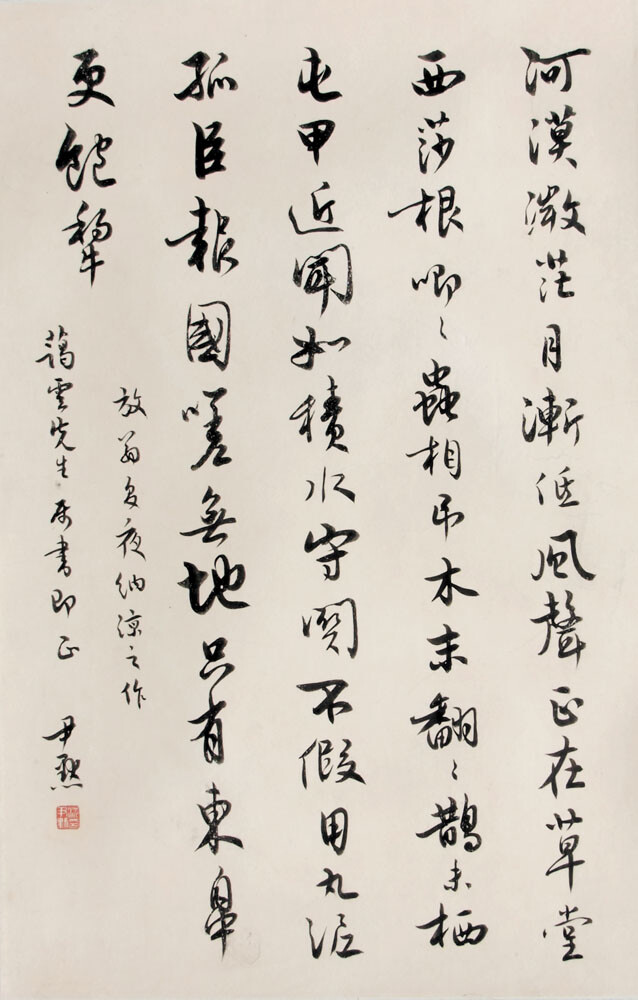 河漢微茫月漸低風聲正在草堂
西莎根唧〻蟲相吊木末翻〻鵲未栖
屯甲近聞如積水守關不假用丸泥
孤臣報國嗟無地只有東皋
更飽犂
放翁夏夜納涼之作
藹雲先生属書即正 尹默